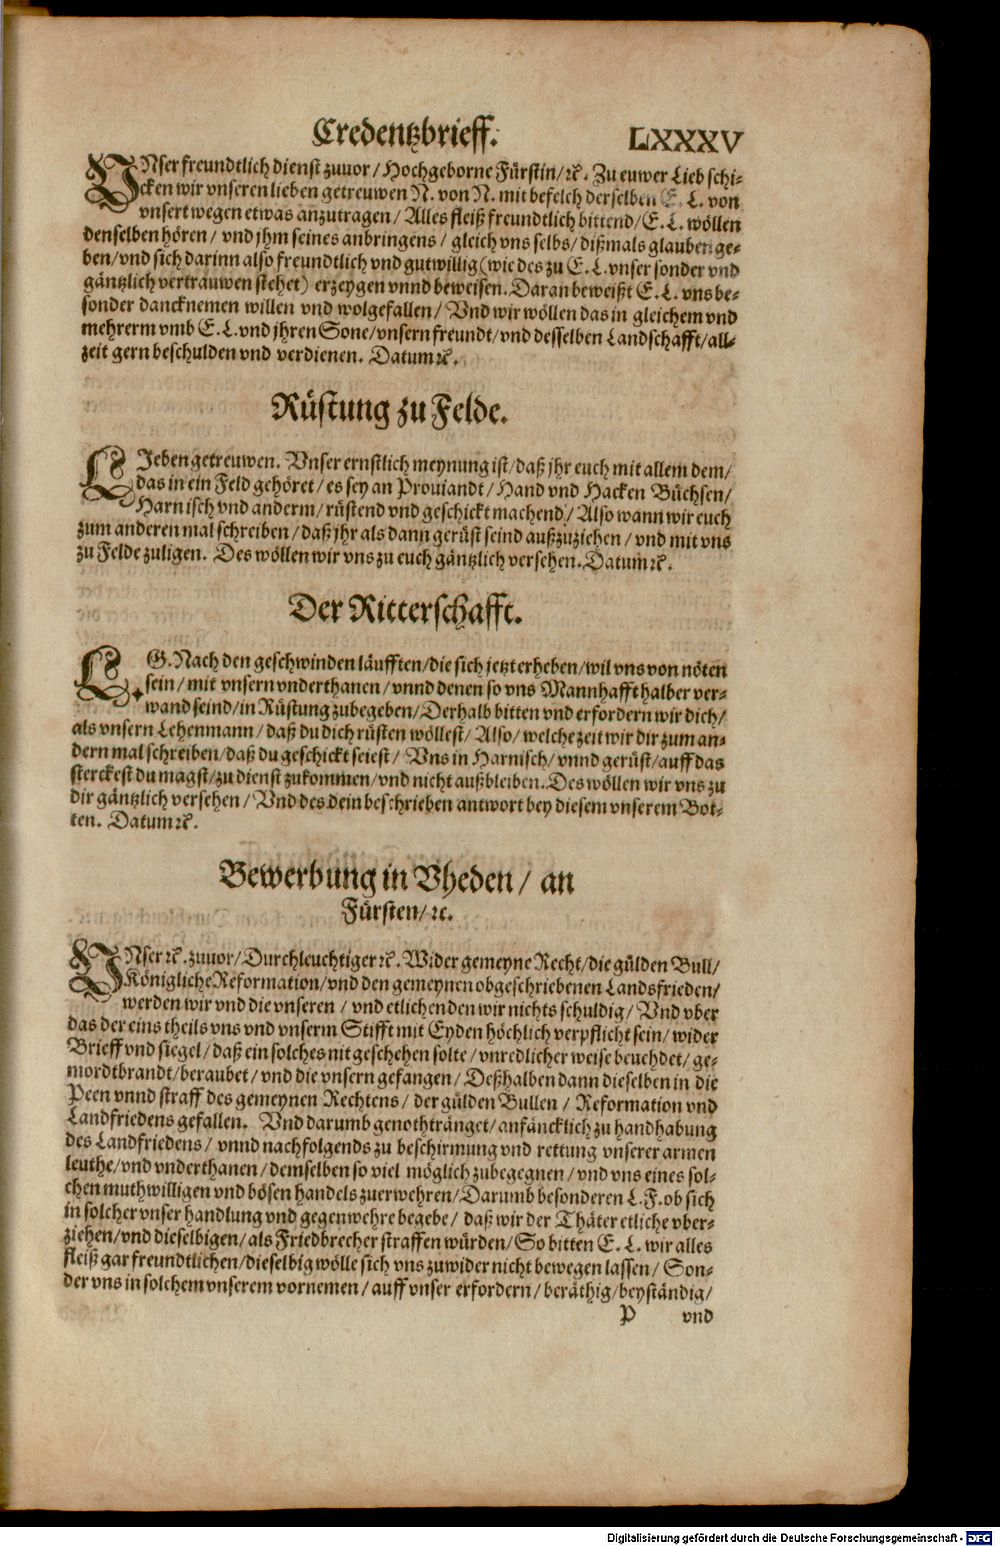 Credentzbrieff. LXXXV
VNser freundtlich dienst zuuor / Hochgeborne Fürstin / ꝛc. Zu euwer Lieb schi-
cken wir vnseren lieben getreuwen N. von N. mit befelch derselben E. L. von
vnsert wegen etwas anzutragen / Alles fleiß freundtlich bittend / E. L. wöllen
denselben hören / vnd jhm seines anbringens / gleich vns selbs / dißmals glauben ge-
ben / vnd sich darinn also freundtlich vnd gutwillig (wie des zu E. L. vnser sonder vnd
gäntzlich vertrauwen stehet) erzeygen vnnd beweisen. Daran beweißt E. L. vns be-
sonder dancknemen willen vnd wolgefallen / Vnd wir wöllen das in gleichem vnd
mehrerm vmb E. L. vnd jhren Sone / vnsern freundt / vnd desselben Landschafft / all-
zeit gern beschulden vnd verdienen. Datum ꝛc.
Rüstung zu Felde.
LJeben getreuwen. Vnser ernstlich meynung ist / daß jhr euch mit allem dem /
das in ein Feld gehöret / es sey an Prouiandt / Hand vnd Hacken Büchsen /
Harnisch vnd anderm / rüstend vnd geschickt machend / Also wann wir euch
zum anderen mal schreiben / daß jhr als dann gerüst seind außzuziehen / vnd mit vns
zu Felde zuligen. Des wöllen wir vns zu euch gäntzlich versehen. Datum ꝛc.
Der Ritterschafft.
L. G. Nach den geschwinden läufften / die sich jetzt erheben / wil vns von nöten
sein / mit vnsern vnderthanen / vnnd denen so vns Mannhafft halber ver-
wand seind / in Rüstung zubegeben / Derhalb bitten vnd erfordern wir dich /
als vnsern Lehenmann / daß du dich rüsten wöllest / Also / welche zeit wir dir zum an-
dern mal schreiben / daß du geschickt seiest / Vns in Harnisch / vnnd gerüst / auff das
sterckest du magst / zu dienst zukommen / vnd nicht außbleiben. Des wöllen wir vns zu
dir gäntzlich versehen / Vnd des dein beschrieben antwort bey diesem vnserem Bot-
ten. Datum ꝛc.
Bewerbung in Vheden / an
Fürsten / ꝛc.
VNser ꝛc. zuuor / Durchleuchtiger ꝛc. Wider gemeyne Recht / die gülden Bull /
Königliche Reformation / vnd den gemeynen obgeschriebenen Landsfrieden /
werden wir vnd die vnseren / vnd etlichen den wir nichts schuldig / Vnd vber
das der eins theils vns vnd vnserm Stifft mit Eyden höchlich verpflicht sein / wider
Brieff vnd siegel / daß ein solches nit geschehen solte / vnredlicher weise beuehdet / ge-
mordtbrandt / beraubet / vnd die vnsern gefangen / Deßhalben dann dieselben in die
Peen vnnd straff des gemeynen Rechtens / der gülden Bullen / Reformation vnd
Landfriedens gefallen. Vnd darumb genothtränget / anfäncklich zu handhabung
des Landfriedens / vnnd nachfolgends zu beschirmung vnd rettung vnserer armen
leuthe / vnd vnderthanen / demselben so viel möglich zubegegnen / vnd vns eines sol-
chen muthwilligen vnd bösen handels zuerwehren / Darumb besonderen L. F. ob sich
in solcher vnser handlung vnd gegenwehre begebe / daß wir der Thäter etliche vber-
ziehen / vnd dieselbigen / als Friedbrecher straffen würden / So bitten E. L. wir alles
fleiß gar freundtlichen / dieselbig wölle sich vns zuwider nicht bewegen lassen / Son-
der vns in solchem vnserem vornemen / auff vnser erfordern / beräthig / beyständig /
P vnd
Digitalisierung gefördert durch die Deutsche Forschungsgemeinschaft - DFG